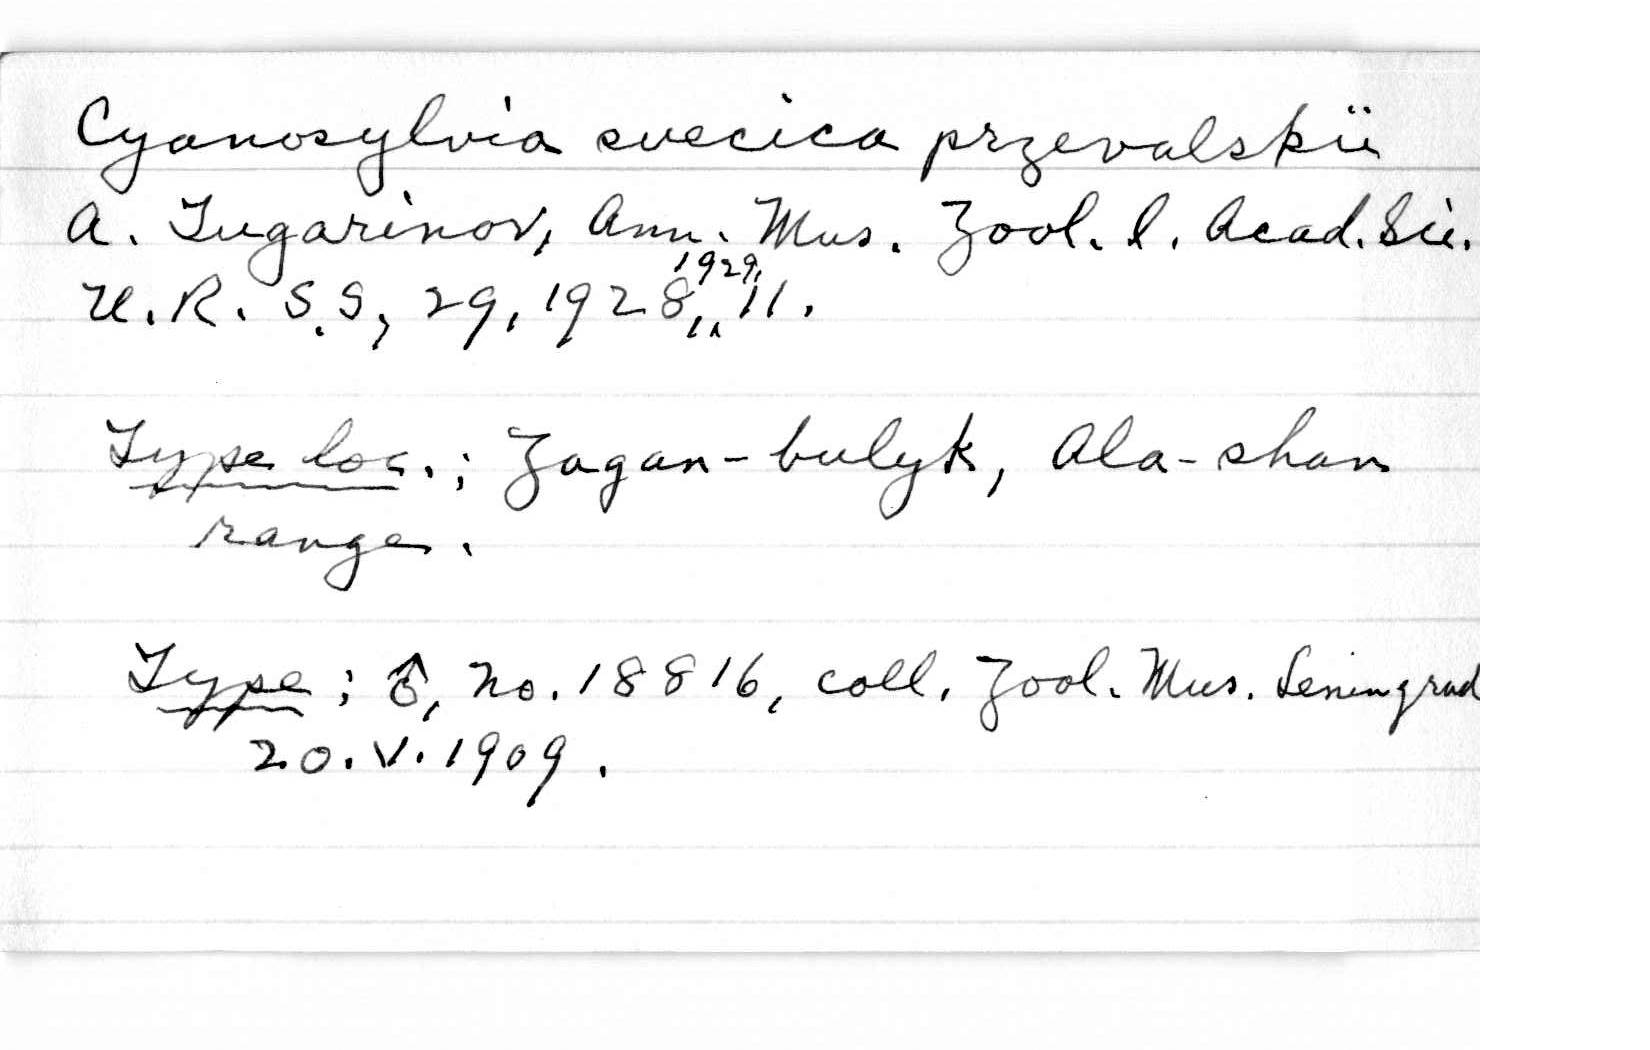 Cyanosylvia suecica przevalskii
A. Tugarinov, Ann. Mus. Zool. l. Acad. Sci.
U.R.S.S, 29, 1928, 1929, 11.
Type loc.; Zagan-bulyk, Ala-shan
range.
Type; ♂, No. 18816, coll. Zool. Mus. Leningrad
20.V.1909.